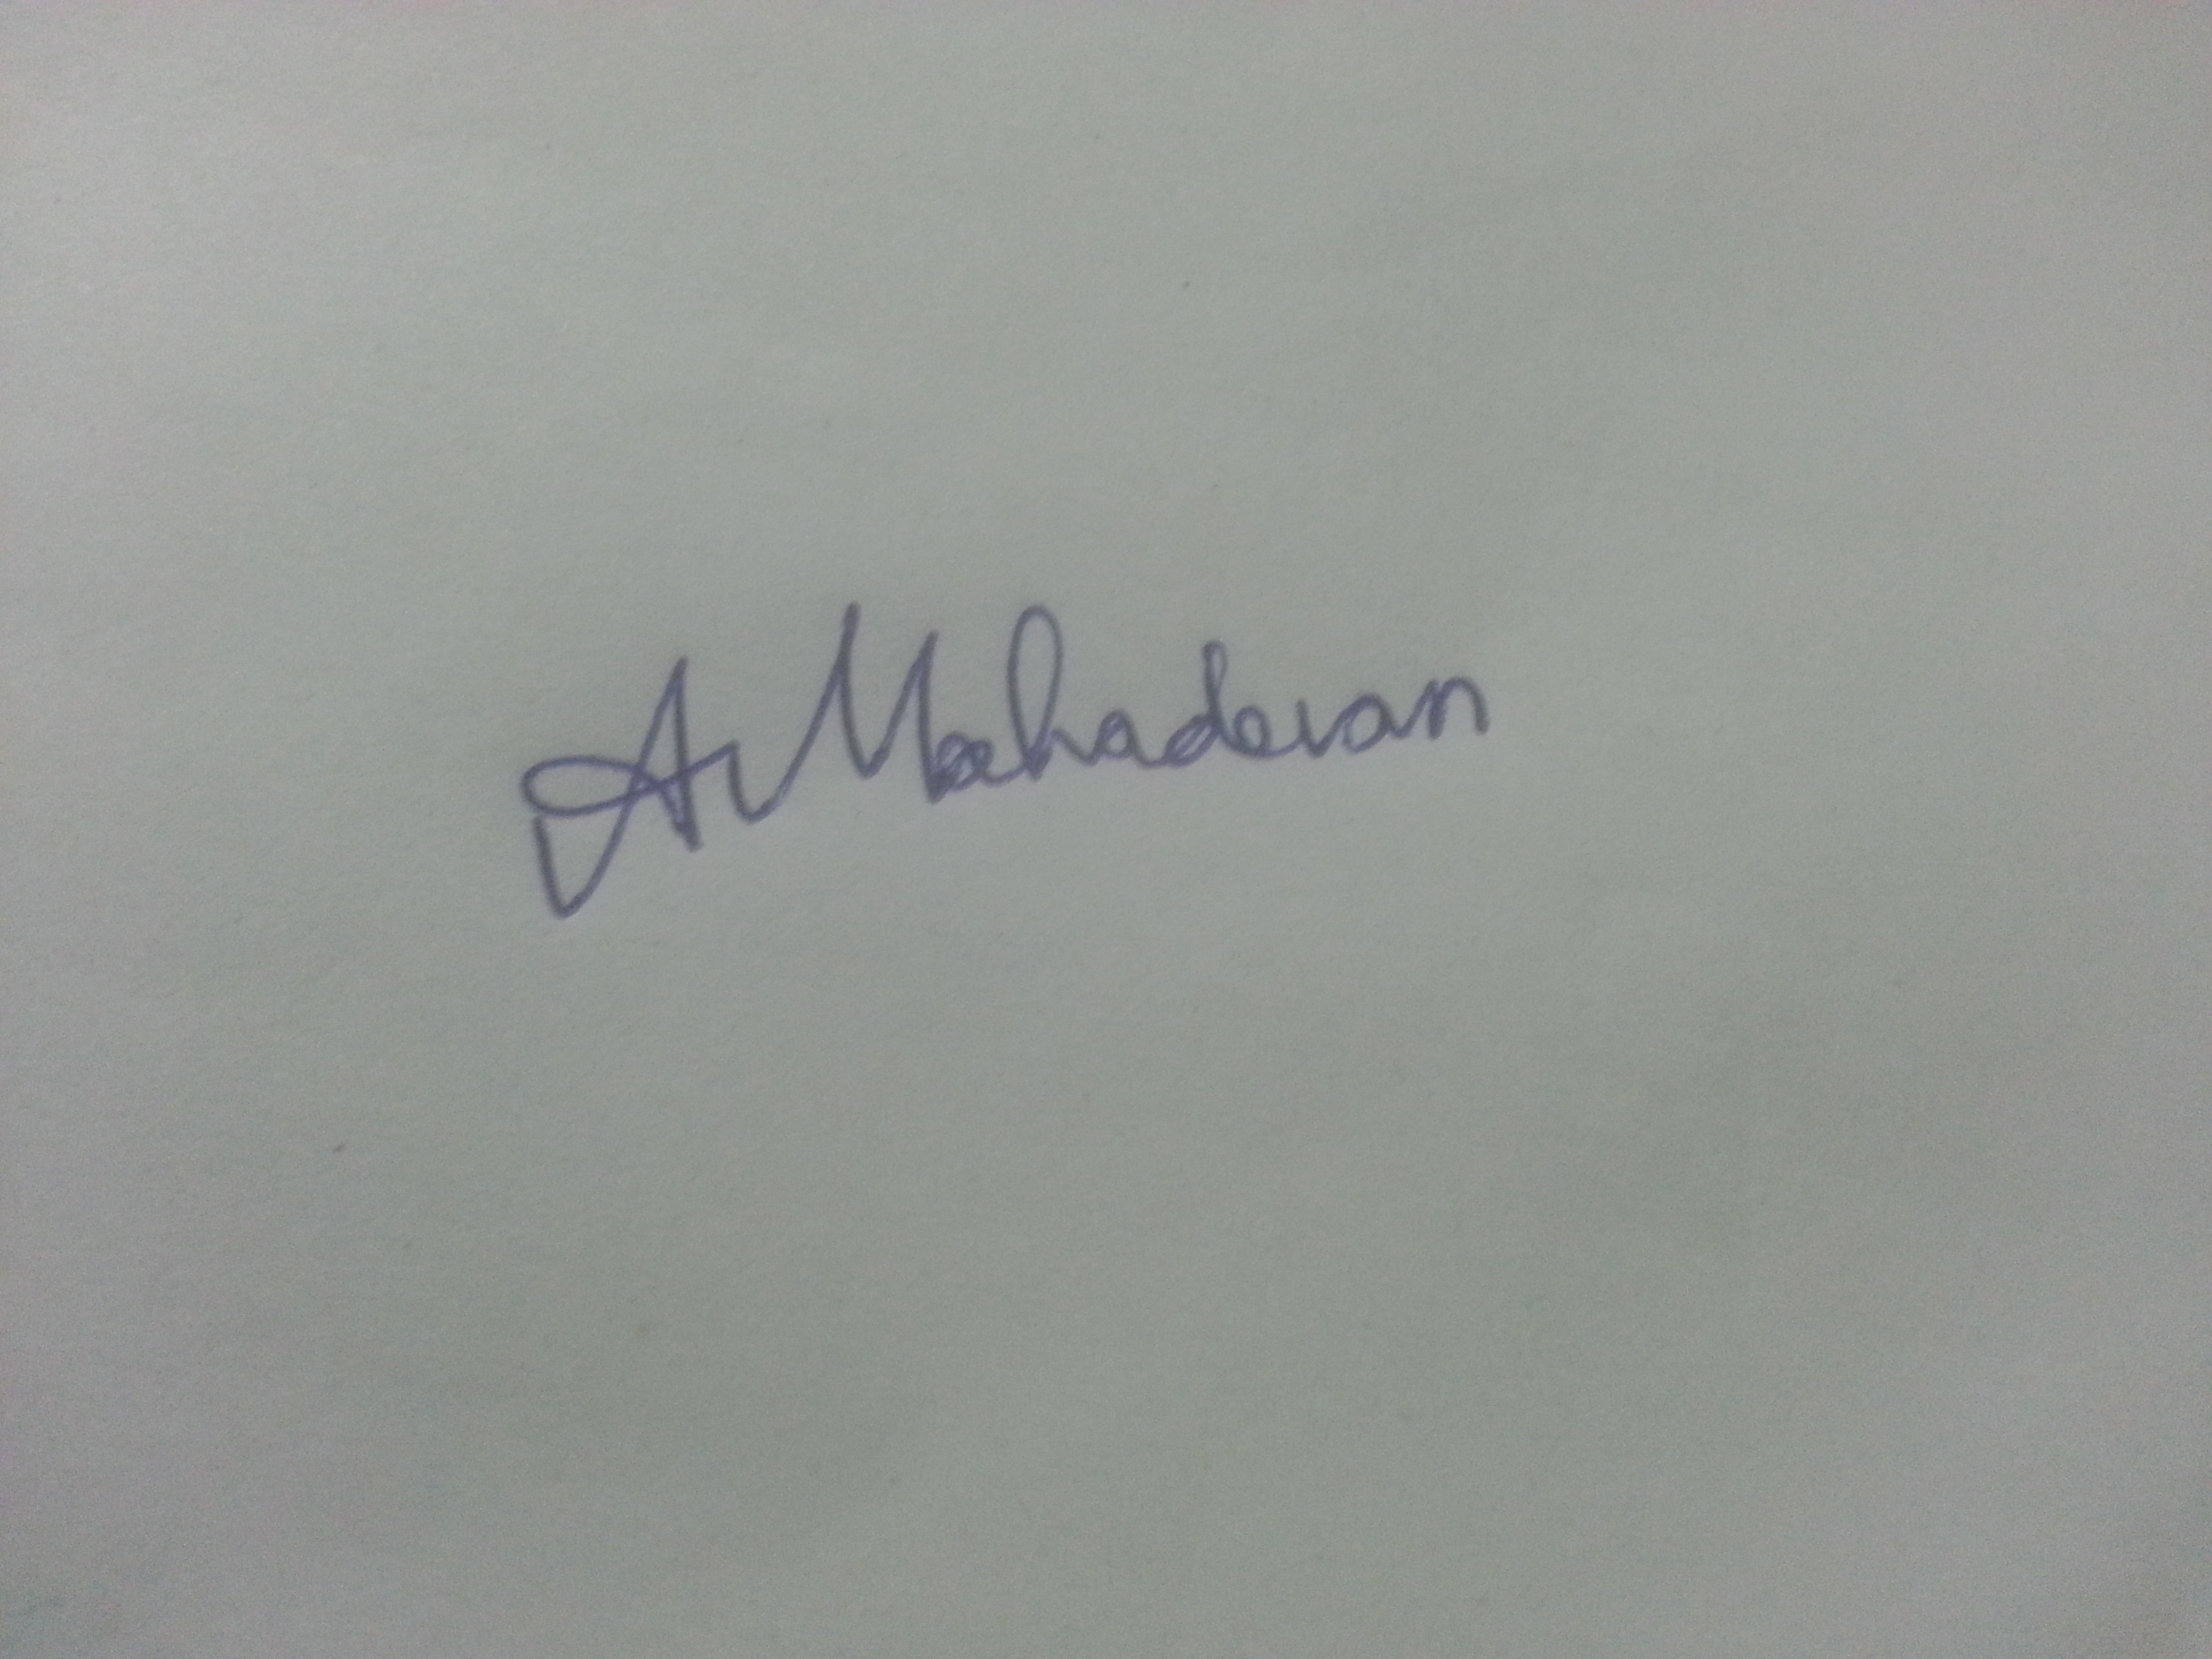 A Mahadevan